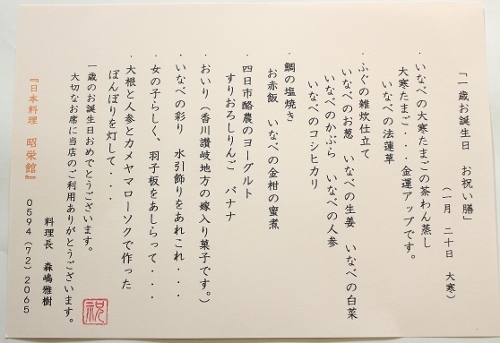 「一歳お誕生日 お祝い膳」
(一月 二十日 大寒)
・いなべの大寒たまごの茶わん蒸し
大寒たまご・・・金運アップです。
いなべの法蓮草
・ふぐの雑炊仕立て
いなべのお葱 いなべの生姜 いなべの白菜
いなべのかぶら いなべの人参
いなべのコシヒカリ
・鯛の塩焼き
お赤飯 いなべの金柑の蜜煮
・四日市酪農のヨーグルト
すりおろしりんご バナナ
・おいり(香川讃岐地方の嫁入り菓子です。)
・いなべの彩り 水引飾りをあれこれ・・・
・女の子らしく、羽子板をあしらって・・・
・大根と人参とカメヤマローソクで作った
ぼんぼりを灯して・・・
一歳のお誕生日おめでとうございます。
大切なお席に当店のご利用ありがとうございます。
料理長 森嶋雅樹
『日本料理 昭栄館』
0594(72)2065
祝